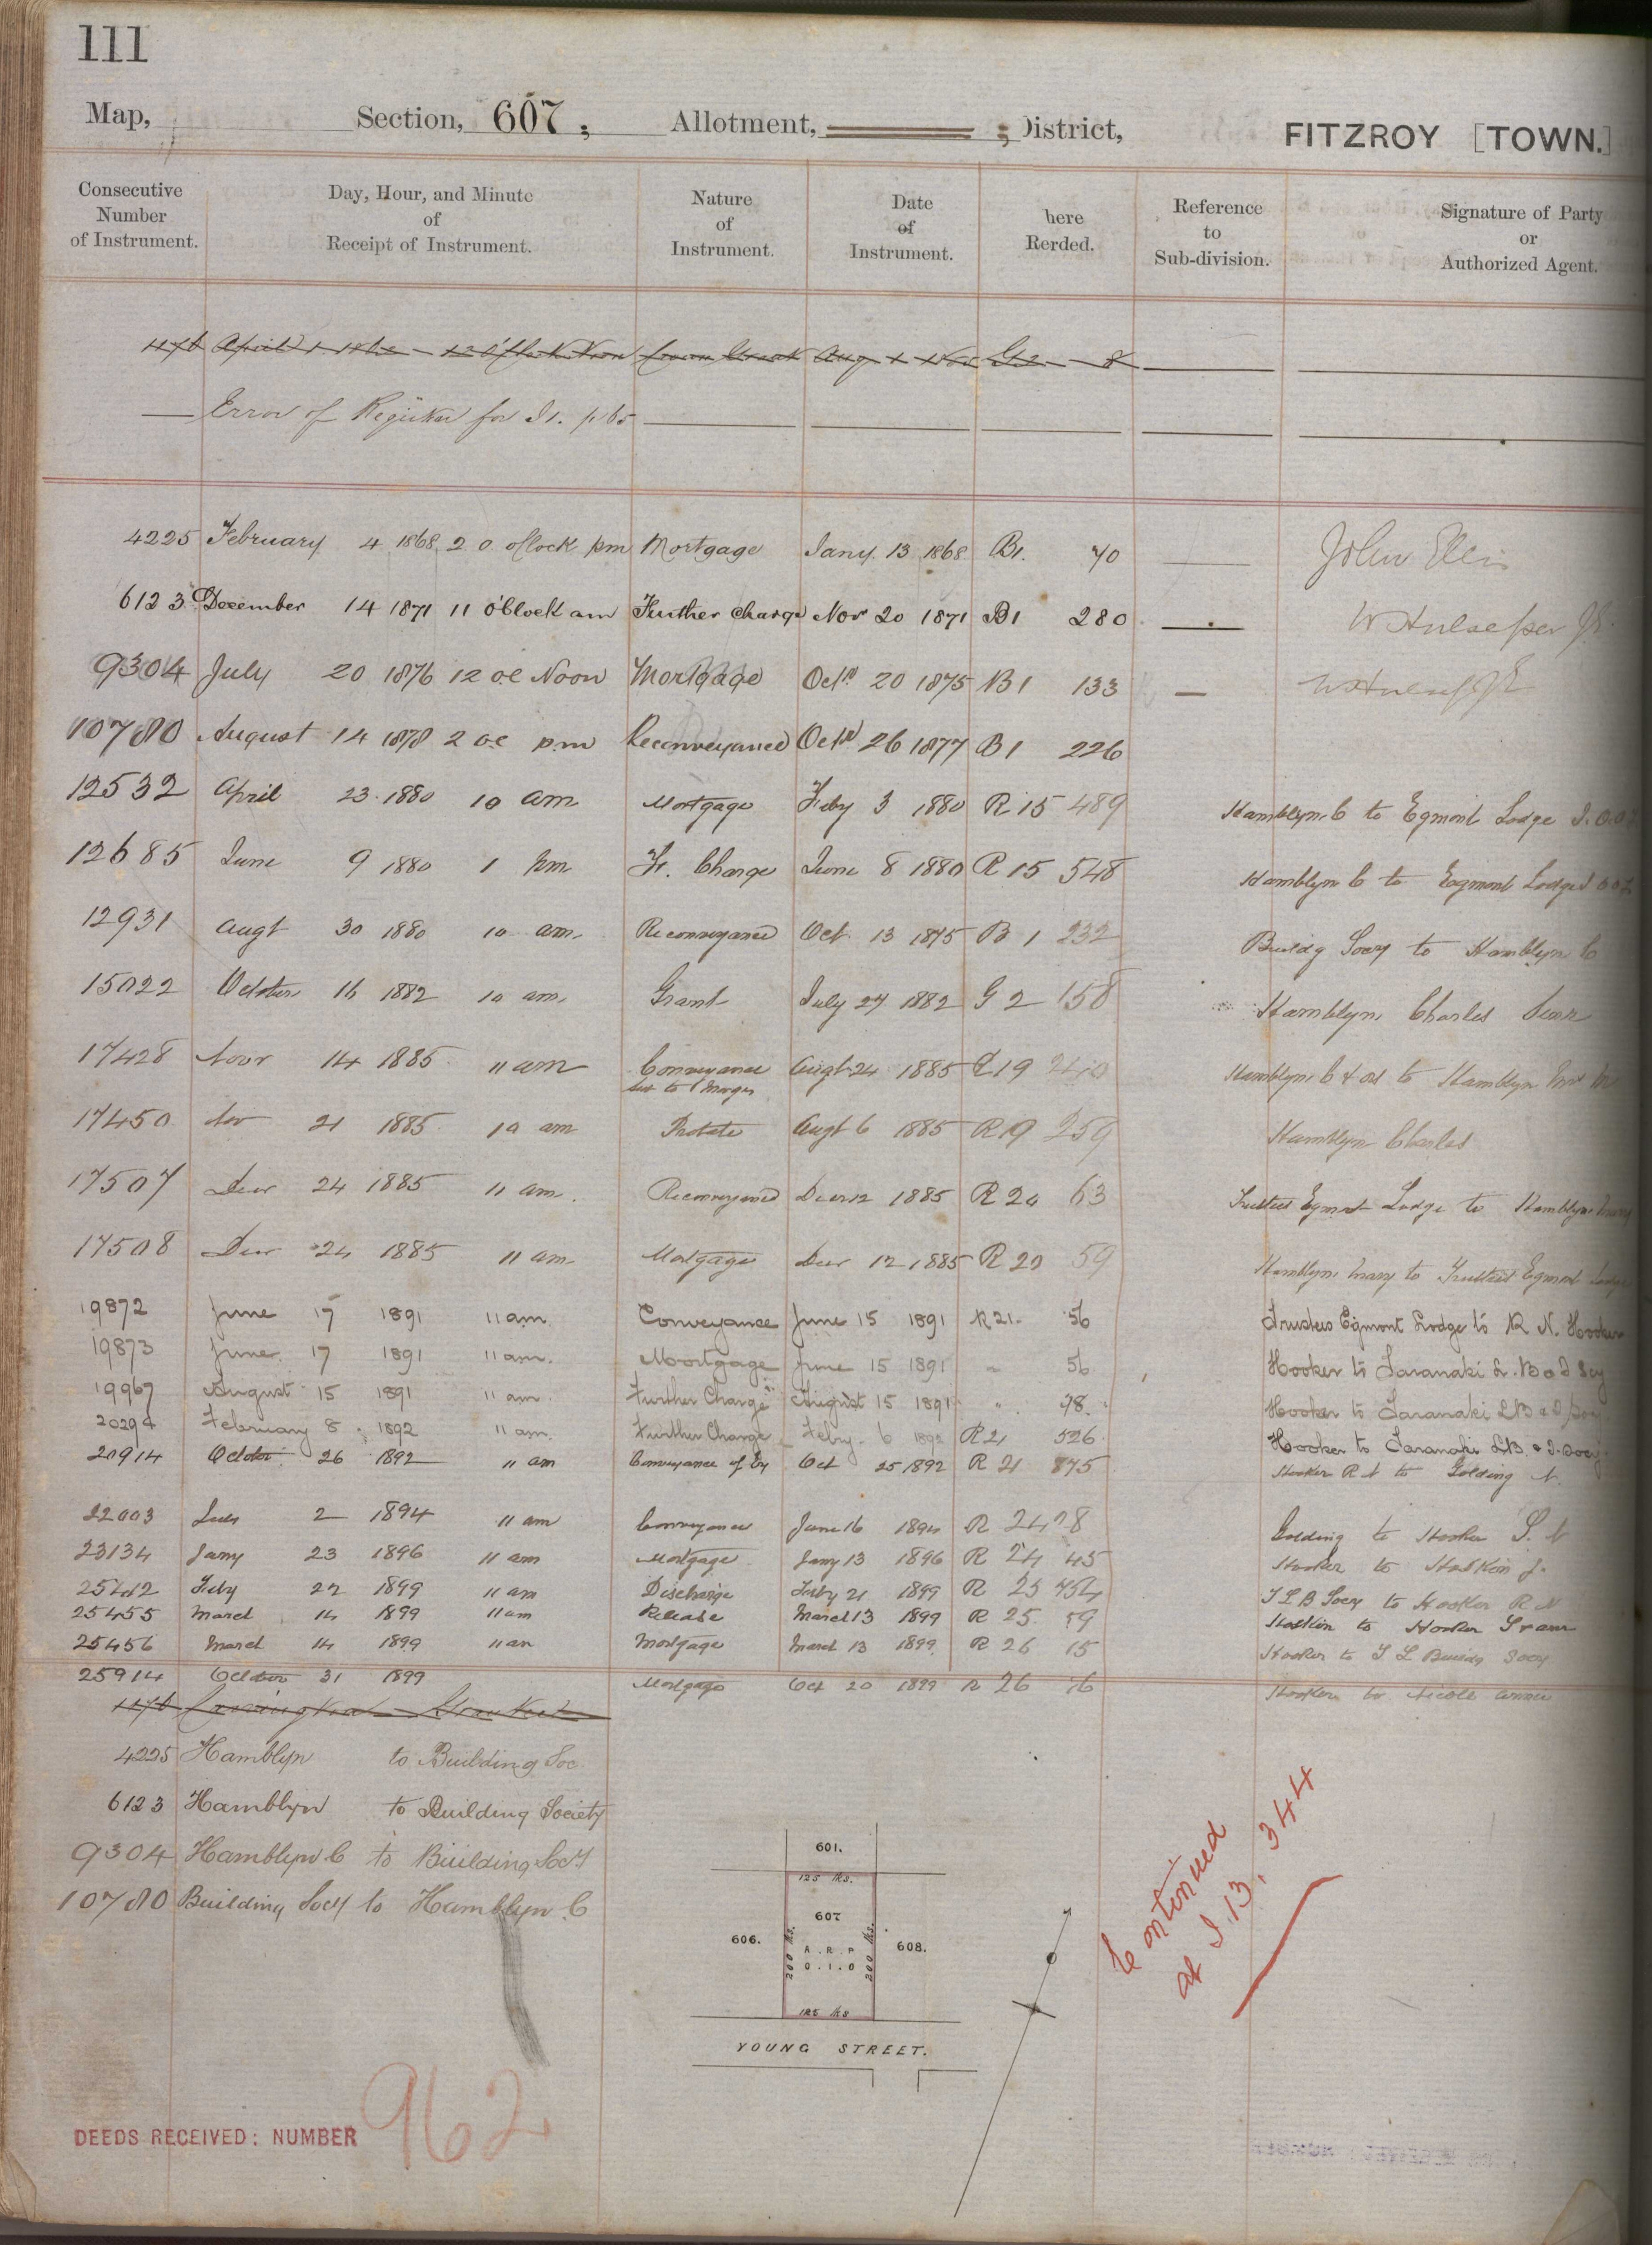 111
Map, Section, 607, Allotment, ; District, FITZROY [TOWN.]
Consecutive Number of Instrument. Day, Hour, and Minute of Receipt of Instrument. Nature of Instrument. Date of Instrument. here Rerded. Reference to Sub-division. Signature of Party or Authorized Agent.
Error of Register for I1. p 65
4225 February 4 1868 2 o oClock pm Mortgage Jany. 13 1868 B1. 70 John Ellis
6123 December 14 1871 11 o'Clock am Further Charge Nov 20 1871 B1 280
9304 July 20 1876 12 oc Noon Mortgage Oct 20 1875 B1 133
10780 August 14 1878 2 oc p.m Reconveyance Oct 26 1877 B1 226
12532 April 23 1880 10 am Mortgage Feby 3 1880 R 15 489 Hamblyn C to Egmont Lodge
12685 June 9 1880 1 pm Fr. Charge June 8 1880 R 15 548 Hamblyn C to Egmont Lodge
12931 Augt 30 1880 10 am. Reconveyance Oct 13 1875 B 1 232 Buildg Socy to Hamblyn C
15022 October 16 1882 10 am. Grant July 27 1882 G 2 158 Hamblyn Charles Senr
17428 Novr 14 1885 11 am Conveyance Augt 24 1885 19 Hamblyn C & ors to Hamblyn
17450 Nov 21 1885 10 am Probate Augt 6 1885 R 19 259 Hamblyn Charles
17507 Decr 24 1885 11 am. Reconveyance Decr 12 1885 R 20 63 Trustees Egmont Lodge to Hamblyn Mary
17508 Decr 24 1885 11 am Mortgage Decr 12 1885 R 20 59 Hamblyn, Mary to Trustees Egmont Lodge
19872 June 17 1891 11 am. Conveyance June 15 1891 R 21. 56 Trustees Egmont Lodge to R N. Hooker
19873 June 17 1891 11 am. Mortgage June 15 1891 " 56 Hooker to Taranaki L. B & I Socy
19967 August 15 1891 11 am. Further Charge August 15 1891 " 98. Hooker to Taranaki L B & I Socy
20294 February 8 1892 11 am. Further Charge Feby. 6 1892 R 21 526 Hooker to Taranaki L.B. & I. Socy.
20914 October 26 1892 11 am Conveyance of Ey Oct 25 1892 R 21 875 Hooker R N to Golding N.
22003 July 2 1894 11 am Conveyance June 16 1894 R Golding to Hooker
23134 Jany 23 1896 11 am Mortgage Jany 13 1896 R 24 45 Hooker to Hoskin J.
Feby 22 1899 11 am Discharge Feby 21 1899 R 25 454 T L B Socy to Hooker R N
25455 March 14 1899 11 am Release March 13 1899 R 25. 59 Hoskin to Hooker
25456 March 14 1899 11 am Mortgage March 13 1899 R 26 15 Hooker to T L Buildg Socy
25914 October 31 1899 Mortgage Oct 20 1899 R 26
4225 Hamblyn to Building Soc
6123 Hamblyn to Building Society
9304 Hamblyn C to Building Socy
10780 Building Socy to Hamblyn C
601.
125 lks.
607
606. 608.
200 lks. A. R. P 200 lks.
0. 1. 0
125 lks
YOUNG STREET.
Continued
at I 13, 344
DEEDS RECEIVED: NUMBER 962